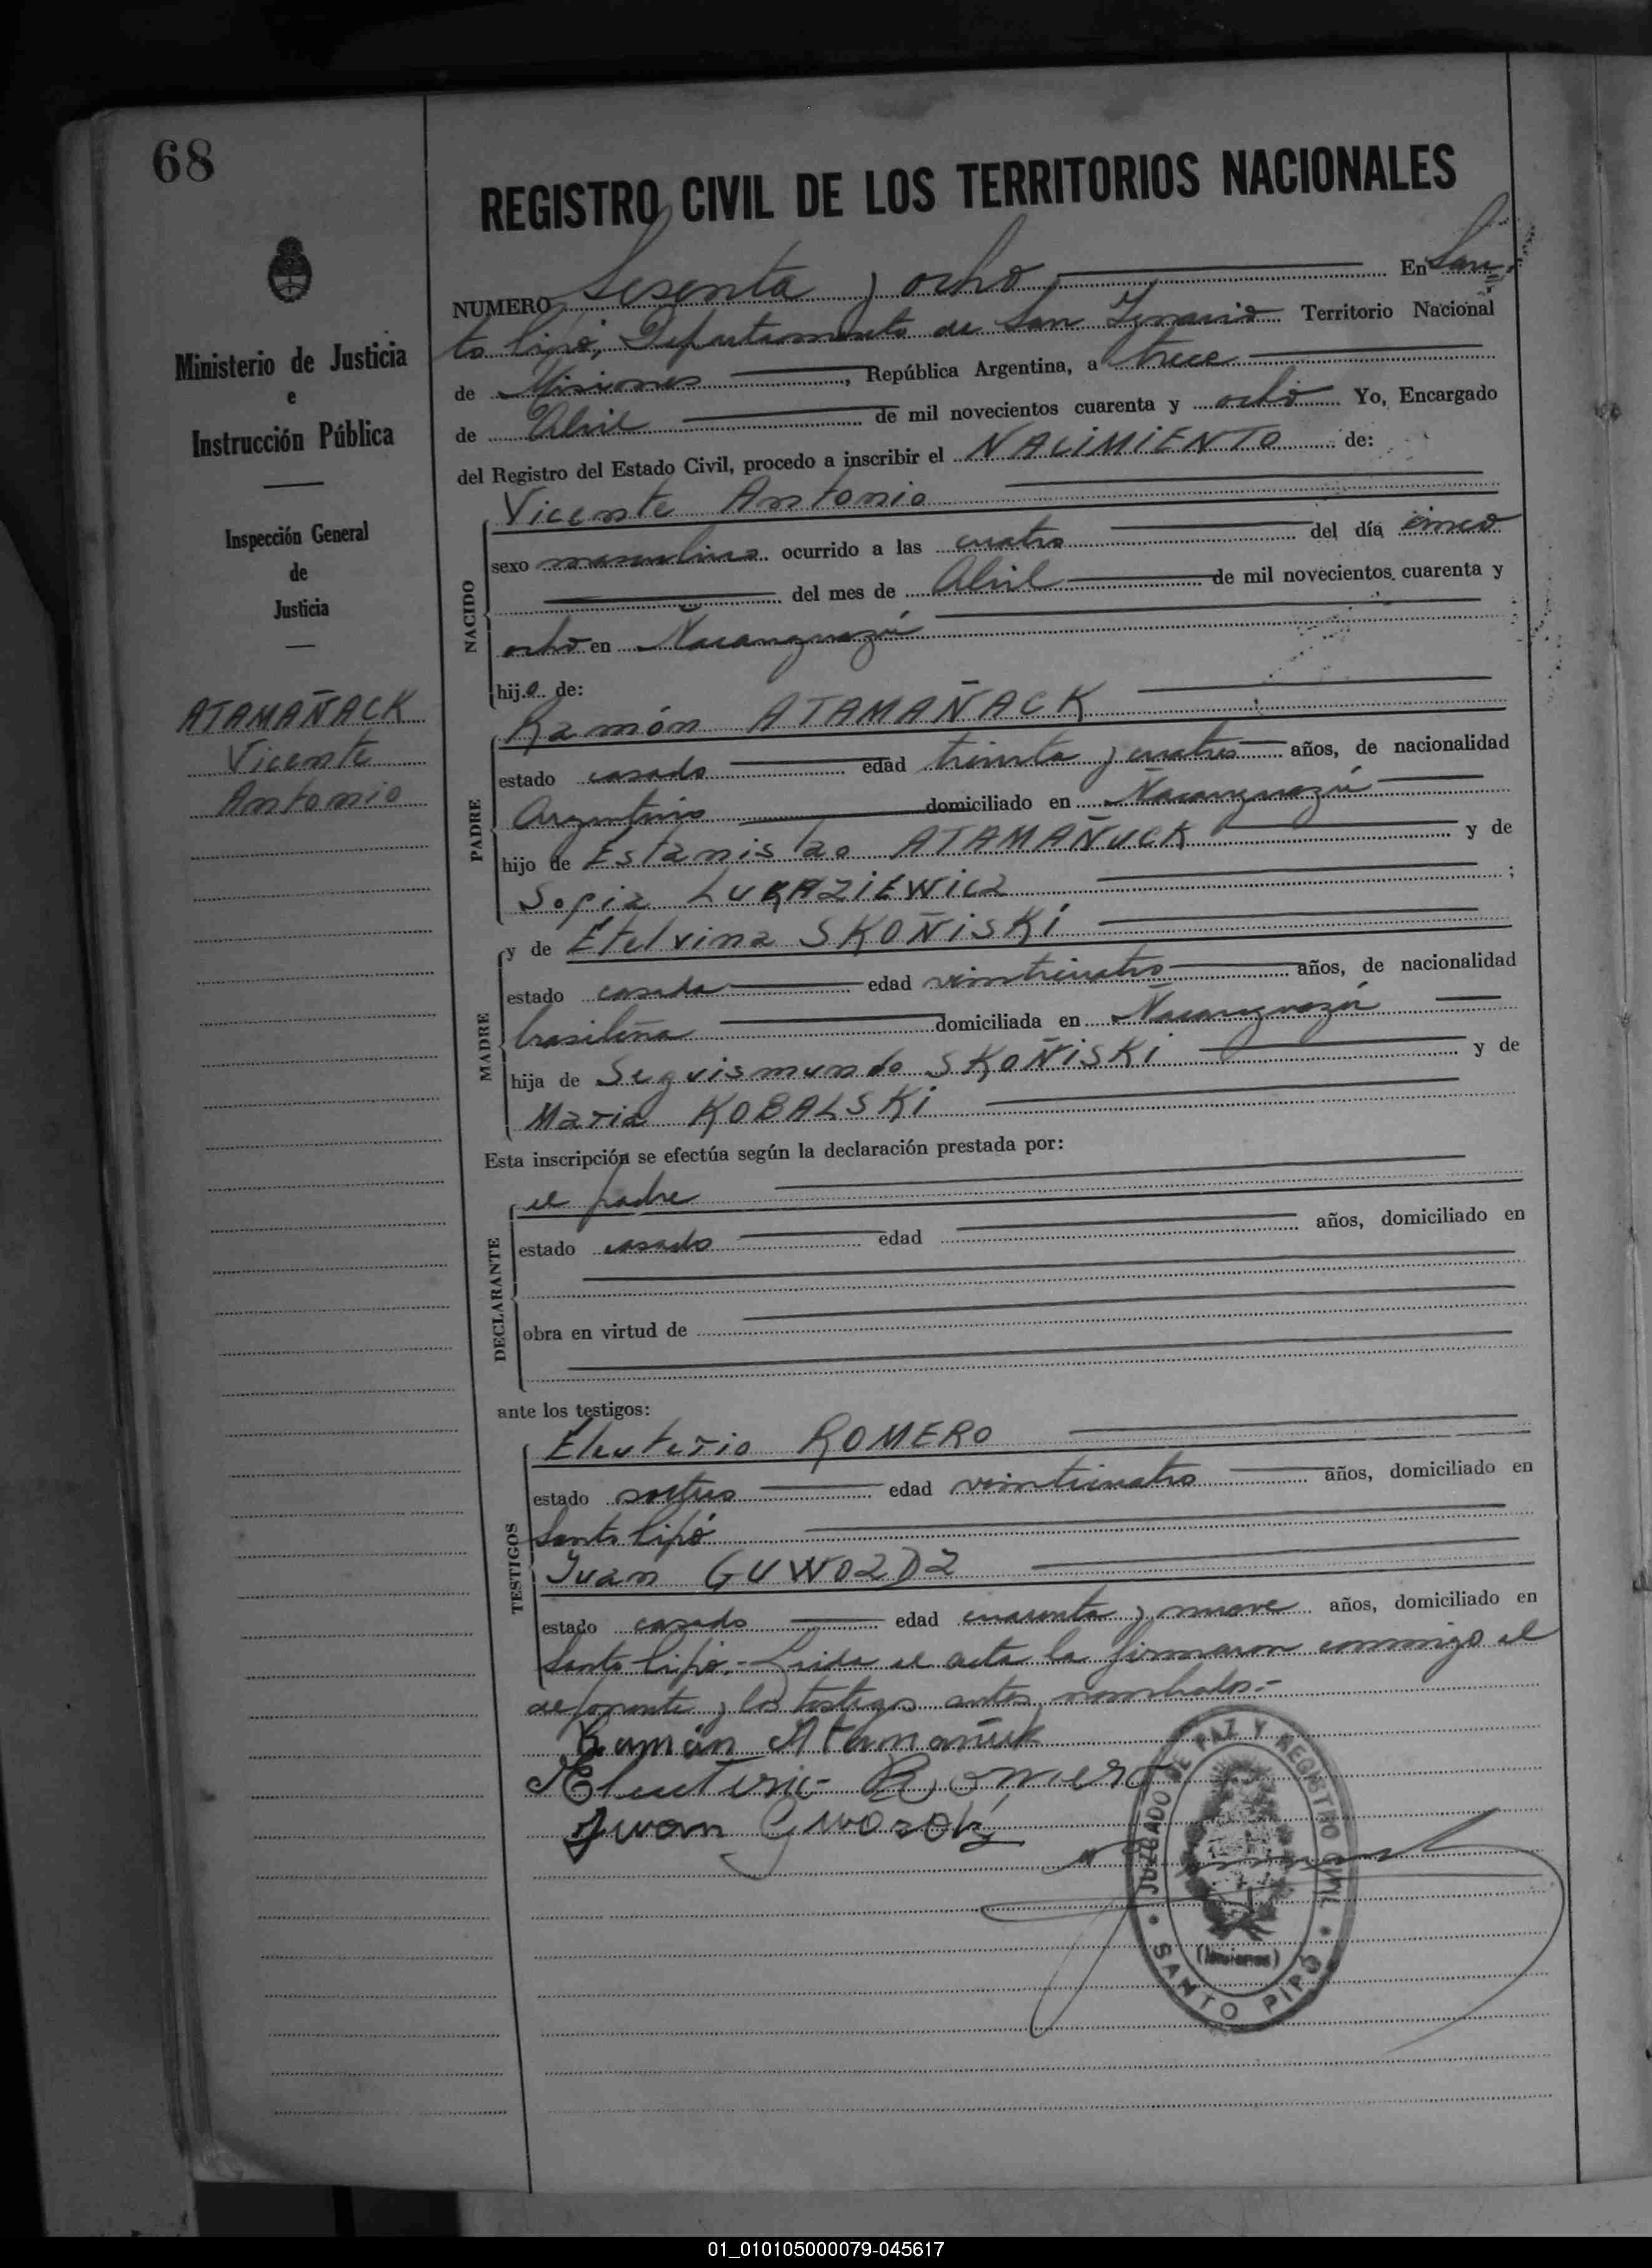 68
Ministerio de Justicia
e
Instrucción Pública
Inspección General
de
Justicia
ATAMAÑACK
Vicente
Antonio
REGISTRO CIVIL DE LOS TERRITORIOS NACIONALES
NUMERO Sesenta y ocho En San
to Pipó, Departamento de San Ignacio Territorio Nacional
de Misiones, República Argentina, a trece
de Abril de mil novecientos cuarenta y ocho Yo, Encargado
del Registro del Estado Civil, procedo a inscribir el NACIMIENTO de:
NACIDO
Vicente Antonio
sexo masculino ocurrido a las cuatro del día cinco
del mes de Abril de mil novecientos cuarenta y
ocho en Ñacanguazú
hijo de:
PADRE
Ramón ATAMAÑACK
estado casado edad treinta y cuatro años, de nacionalidad
Argentino domiciliado en Ñacanguazú
hijo de Estanislao ATAMAÑUCK y de
Sofia LUKAZIEWICZ ;
MADRE
y de Etelvina SKOÑISKI
estado casada edad veinticuatro años, de nacionalidad
brasileña domiciliada en Ñacanguazú
hija de Seguismundo SKOÑISKI y de
Maria KOBALSKI
Esta inscripción se efectúa según la declaración prestada por:
DECLARANTE
el padre
estado casado edad años, domiciliado en
obra en virtud de
ante los testigos:
TESTIGOS
Eleuterio ROMERO
estado soltero edad veinticuatro años, domiciliado en
Santo Pipó
Juan GUWOZDZ
estado casado edad cuarenta y nueve años, domiciliado en
Santo Pipó.- Leida el acta la firmaron conmigo el
deponente y los testigos antes nombrados.-
Ramón Atamañuk
Eleuterio Romero
Juan Gwozdz
JUZGADO DE PAZ Y REGISTRO CIVIL
(Misiones)
SANTO PIPÓ
01_010105000079-045617